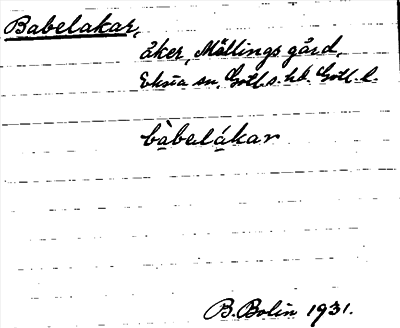 Babelakar,
åker, Mällings gård,
Eksta sn, Gotl. s. hd. Gotl. l.
bàbelákar
B. Bolin 1931.